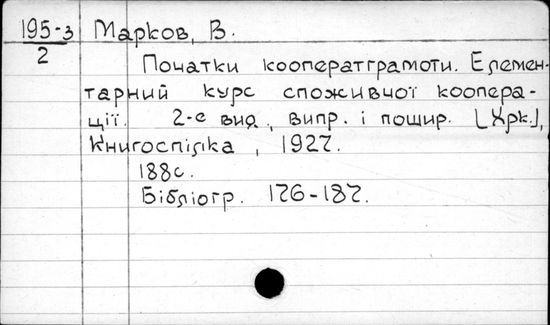 195-3 Марков, В.
2
Початки кооператграмоти. Елемен-
тарний курс споживчої коопера-
ції. 2-е вид., випр. і пошир. [Хрк.],
Книгоспілка, 1927.
188с.
Бібліогр. 176-187.